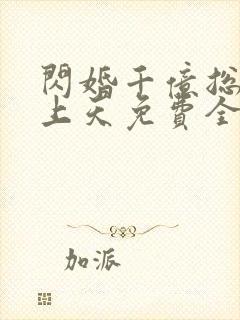 閃婚千億總
上天免費全
加派